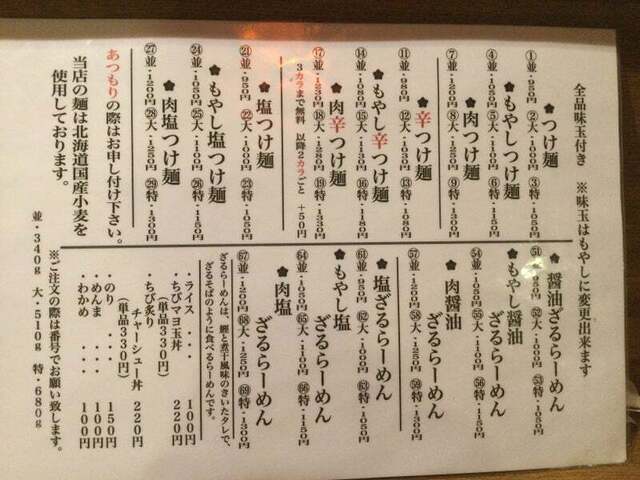 全品味玉付き ※味玉はもやしに変更出来ます
つけ麺
①並・950円 ②大・1000円 ③特・1050円
もやしつけ麺
④並・1050円 ⑤大・1100円 ⑥特・1150円
肉つけ麺
⑦並・1200円 ⑧大・1250円 ⑨特・1300円
辛つけ麺
⑪並・980円 ⑫大・1030円 ⑬特・1080円
もやし辛つけ麺
⑭並・1080円 ⑮大・1130円 ⑯特・1180円
肉辛つけ麺
⑰並・1230円 ⑱大・1280円 ⑲特・1330円
3カラまで無料 以降2カラごと +50円
塩つけ麺
㉑並・950円 ㉒大・1000円 ㉓特・1050円
もやし塩つけ麺
㉔並・1050円 ㉕大・1100円 ㉖特・1150円
肉塩つけ麺
㉗並・1200円 ㉘大・1250円 ㉙特・1300円
あつもりの際はお申し付け下さい。
当店の麺は北海道国産小麦を
使用しております。
醤油ざるらーめん
51並・950円 52大・1000円 53特・1050円
もやし醤油
ざるらーめん
54並・1050円 55大・1100円 56特・1150円
肉醤油
ざるらーめん
57並・1200円 58大・1250円 59特・1300円
塩ざるらーめん
61並・950円 62大・1000円 63特・1050円
もやし塩
ざるらーめん
64並・1050円 65大・1100円 66特・1150円
肉塩
ざるらーめん
67並・1200円 68大・1250円 69特・1300円
ざるらーめんは、鰹と煮干風味のきいたタレで、
ざるそばのように食べるらーめんです。
・ライス・・・100円
・ちびマヨ玉丼 220円
(単品330円)
・ちび炙り
チャーシュー丼 220円
(単品330円)
・のり ・・・・150円
・めんま ・・・100円
・わかめ ・・・100円
※ご注文の際は番号でお願い致します。
並・340g 大・510g 特・680g